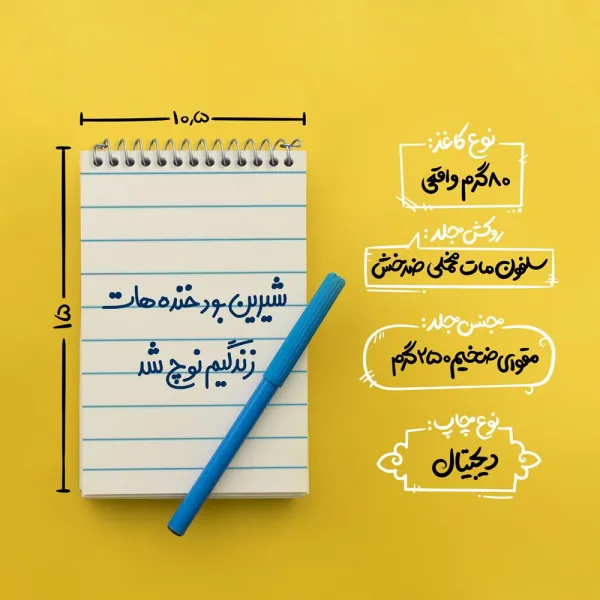 ۱۰٫۵
۱۵
شیرین بود خنده هات
زندگیم نوچ شد
نوع کاغذ:
۸۰ گرم واقعی
روکش جلد:
سلفون مات مخملی ضدخش
جنس جلد:
مقوای ضخیم ۲۵۰ گرم
نوع چاپ:
دیجیتال